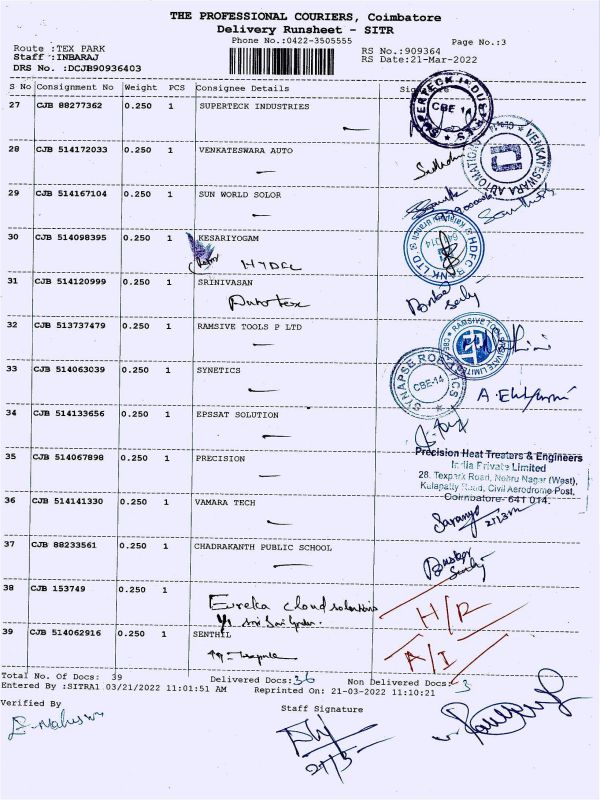 THE PROFESSIONAL COURIERS, Coimbatore
Delivery Runsheet - SITR
Phone No.:0422-3505555
Page No.:3
Route :TEX PARK
RS No.:909364
Staff :INBARAJ
RS Date:21-Mar-2022
DRS No. :DCJB90936403
S No Consignment No Weight PCS Consignee Details Signature
27 CJB 88277362 0.250 1 SUPERTECK INDUSTRIES
SUPERTECK INDUSTRIES CBE 14
28 CJB 514172033 0.250 1 VENKATESWARA AUTO
VENKATESWARA AUTOMATION
29 CJB 514167104 0.250 1 SUN WORLD SOLOR
30 CJB 514098395 0.250 1 KESARIYOGAM
HDFC BANK LTD
31 CJB 514120999 0.250 1 SRINIVASAN
Autotex
32 CJB 513737479 0.250 1 RAMSIVE TOOLS P LTD
RAMSIVE TOOLS PRIVATE LIMITED
33 CJB 514063039 0.250 1 SYNETICS
SYNAPSE ROBOTICS CBE-14
34 CJB 514133656 0.250 1 EPSSAT SOLUTION
35 CJB 514067898 0.250 1 PRECISION
Precision Heat Treaters & Engineers
India Private Limited
28, Texpark Road, Nehru Nagar (West),
Kulapatty Road, Civil Aerodrome Post,
Coimbatore- 641 014.
36 CJB 514141330 0.250 1 VAMARA TECH
Saranya
37 CJB 88233561 0.250 1 CHADRAKANTH PUBLIC SCHOOL
38 CJB 153749 0.250 1
Eureka cloud solutions
H/R
39 CJB 514062916 0.250 1 SENTHIL
A/I
Total No. Of Docs: 39 Delivered Docs: 36 Non Delivered Docs: 3
Entered By :SITRA1 03/21/2022 11:01:51 AM Reprinted On: 21-03-2022 11:10:21
Verified By
Staff Signature
21/3